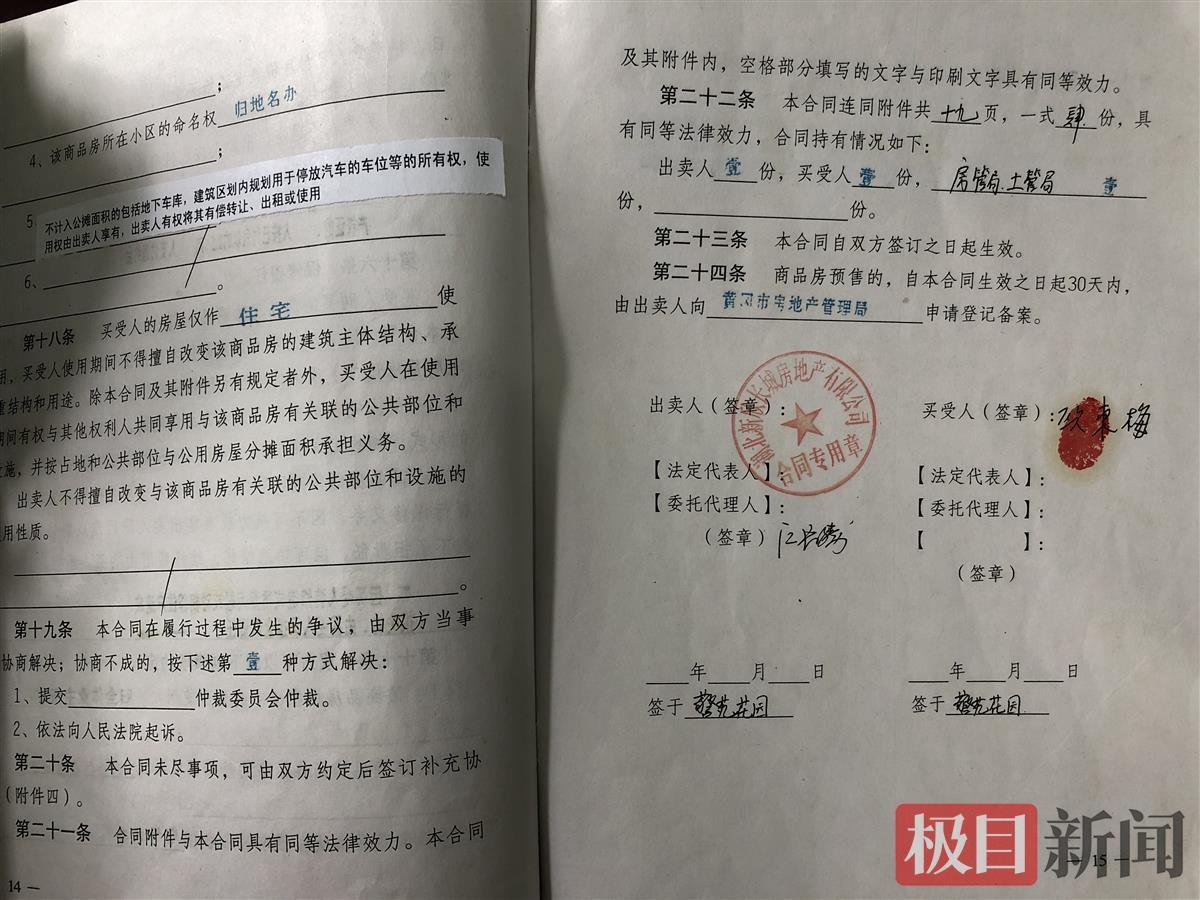 ；
4、该商品房所在小区的命名权 归地名办
；
5、
不计入公摊面积的包括地下车库，建筑区划内规划用于停放汽车的车位等的所有权，使
用权由出卖人享有，出卖人有权将其有偿转让、出租或使用
6、 。
第十八条 买受人的房屋仅作 住宅 使
用，买受人使用期间不得擅自改变该商品房的建筑主体结构、承
重结构和用途。除本合同及其附件另有规定者外，买受人在使用
期间有权与其他权利人共同享用与该商品房有关联的公共部位和
设施，并按占地和公共部位与公用房屋分摊面积承担义务。
出卖人不得擅自改变与该商品房有关联的公共部位和设施的
用性质。
。
第十九条 本合同在履行过程中发生的争议，由双方当事
协商解决；协商不成的，按下述第 壹 种方式解决：
1、提交 仲裁委员会仲裁。
2、依法向人民法院起诉。
第二十条 本合同未尽事项，可由双方约定后签订补充协
（附件四）。
第二十一条 合同附件与本合同具有同等法律效力。本合同
14 —
及其附件内，空格部分填写的文字与印刷文字具有同等效力。
第二十二条 本合同连同附件共 十九 页，一式 肆 份，具
有同等法律效力，合同持有情况如下：
出卖人 壹 份，买受人 壹 份， 房管局.土管局 壹
份， 份。
第二十三条 本合同自双方签订之日起生效。
第二十四条 商品房预售的，自本合同生效之日起30天内，
由出卖人向 黄冈市房地产管理局 申请登记备案。
出卖人（签章）：
湖北新成长城房地产有限公司
合同专用章
买受人（签章）： 梅
【法定代表人】：
【法定代表人】：
【委托代理人】：
【委托代理人】：
（签章） 江
【 】：
（签章）
年 月 日
年 月 日
签于 花园
签于 花园
极目新闻
— 15 —